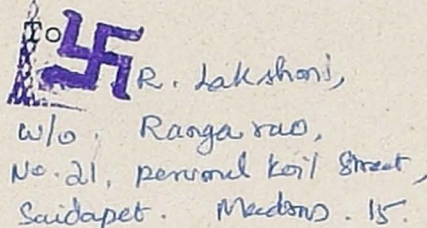 To
R. Lakshmi,
W/o. Ranga rao,
No. 21, perumal Koil Street,
Saidapet. Madras. 15.